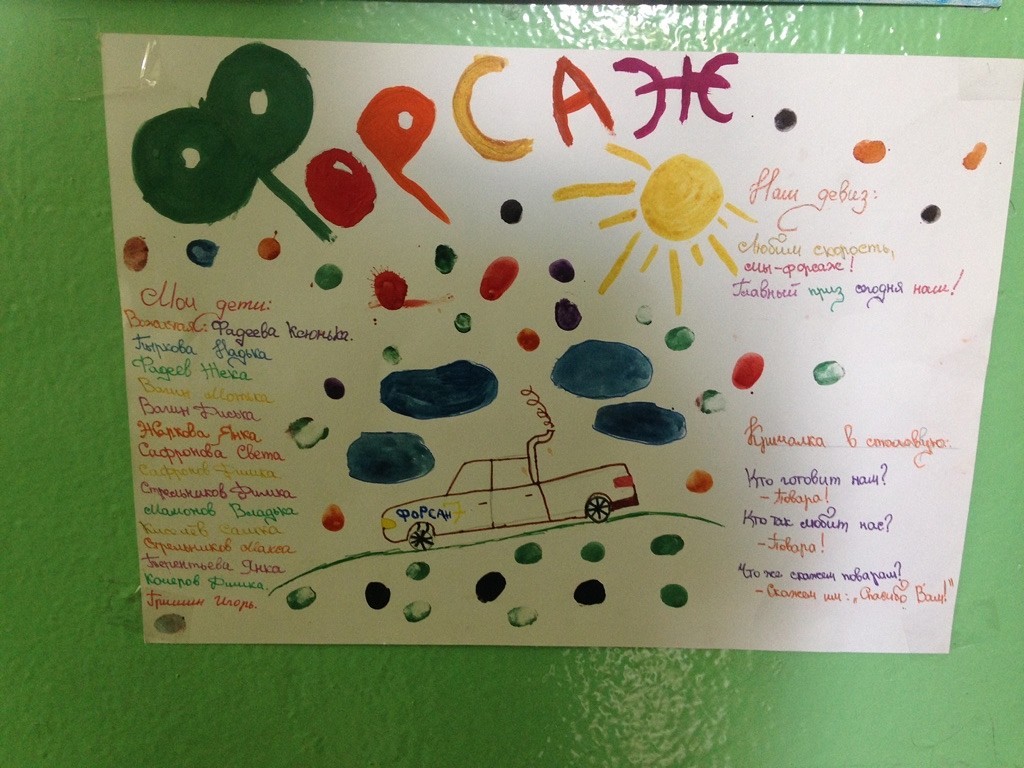 ФОРСАЖ
Наш девиз:
Любим скорость,
мы-форсаж!
Главный приз сегодня наш!
Мои дети:
Вожатая: Фадеева Ксюнька.
Пыркова Надька
Фадеев Жека
Вагин
Вагин Диська
Жаркова Янка
Сафронова Света
Сафронов Димка
Стрельников Димка
Мамонов Владька
Киселёв Сашка
Стрельников Макса
Терентьева Янка
Кочеров Димка.
Гришин Игорь.
ФОРСАЖ
Кричалка в столовую:
Кто готовит нам?
- Повара!
Кто так любит нас?
- Повара!
Что же скажем поварам?
- Скажем им: „Спасибо Вам!"